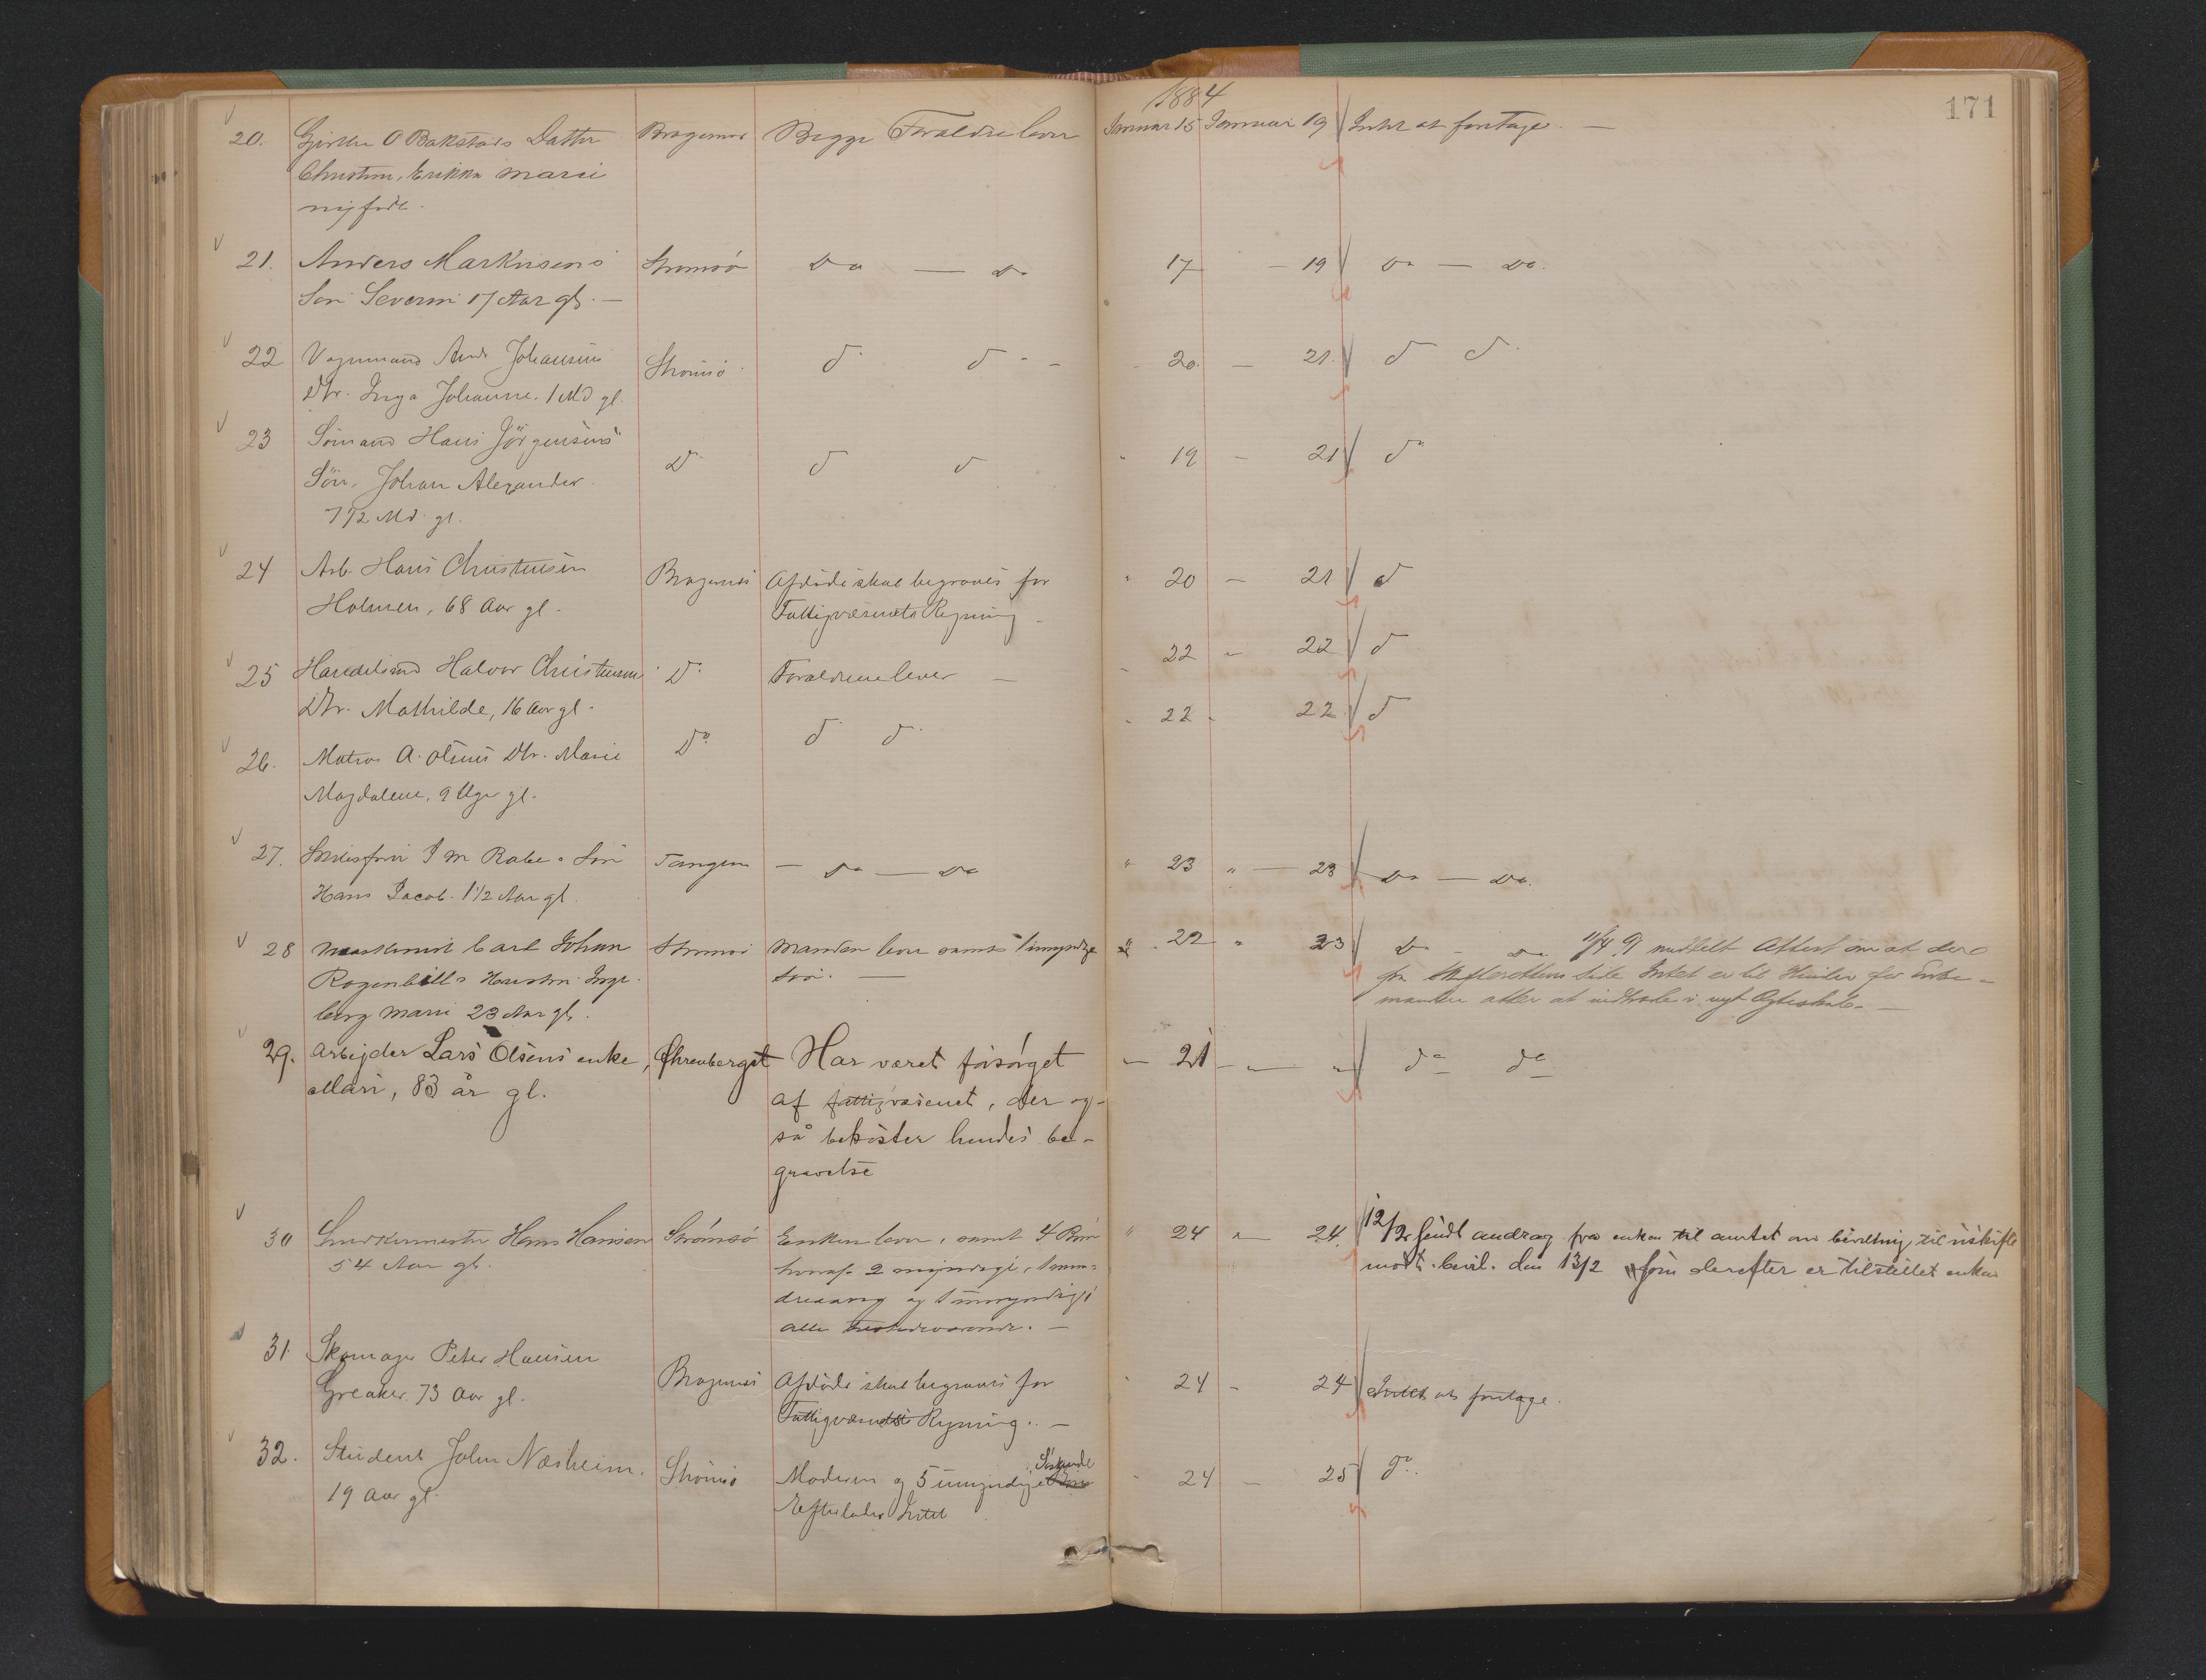 1884
171
20. O Bakstads Datter Bragernes Begge Forældre lever Januar 15 Januar 19 Intet at foretage. —
Erikka Marie
nyfødt.
21. Anders Markusens Strømsø Do — Do 17 — 19 Do — Do.
Søn Severin 17 Aar gl. —
22 Vognmand Johansens Strømsø d d — 20. — 21. d d
Dtr. Inga Johanne. 1 Md gl.
23 Sømand Hans Jörgensens Do d d " 19 — 21 do
Sön, Johan Alexander.
7 1/2 Md. gl.
24 Arb. Hans Christensen Bragernes Afdöde skal begraves for " 20 — 21 d
Holmen, 68 Aar gl. Fattigvæsenets Regning
25 Halvor Christensens Do Forældrene lever — 22 " 22 d
Dtr. Mathilde, 16 Aar gl.
26. Matros A. Olsens Dtr. Marie Do d d 22 22 d
Magdalene, 9 Uger gl.
27. I M Rabe s Søn Tangen — Do — Do " 23 " — 23 Do — Do.
Hans Jacob. 1 1/2 Aar gl.
28 Carl Johan Strømsø Manden lever samt 1 umyndig " 22 " 23 Do Do 11/4 9 meddelt Attest om at der
Hustru Inge- Søn. — fra Skifterettens Side Intet er til Hinder for Enke-
borg Marie 23 Aar gl. manden atter at indtræde i nyt Ægteskab. —
29. Arbejder Lars Olsens enke, Ehrenberget Har været fórsórget — 21 — " — " do do
Mari, 83 år gl. af fattigvæsenet, der og-
så bekóster hendes be-
gravelse
30 Hans Hansen Strömsö Enken lever, samt 4 Børn " 24 " — 24. 12/2 sendt andrag fra enken til amtet om bevilling til uskifte
54 Aar gl. hvoraf 2 myndige, 1 min- modt. bevil. den 13/2 som derefter er tilstillet enken
dreaarig og 1 umyndig
alle
31. Skomager Peter Hansen Bragernes Afdöde skal begraves for " 24 — 24 Intet at foretage.
Greaker. 73 Aar gl. Fattigvæsenets Regning. —
32. Student John Næsheim. Strömsö Moderen og 5 umyndige Söskende " 24 — 25 do.
19 Aar gl. Efterlader Intet